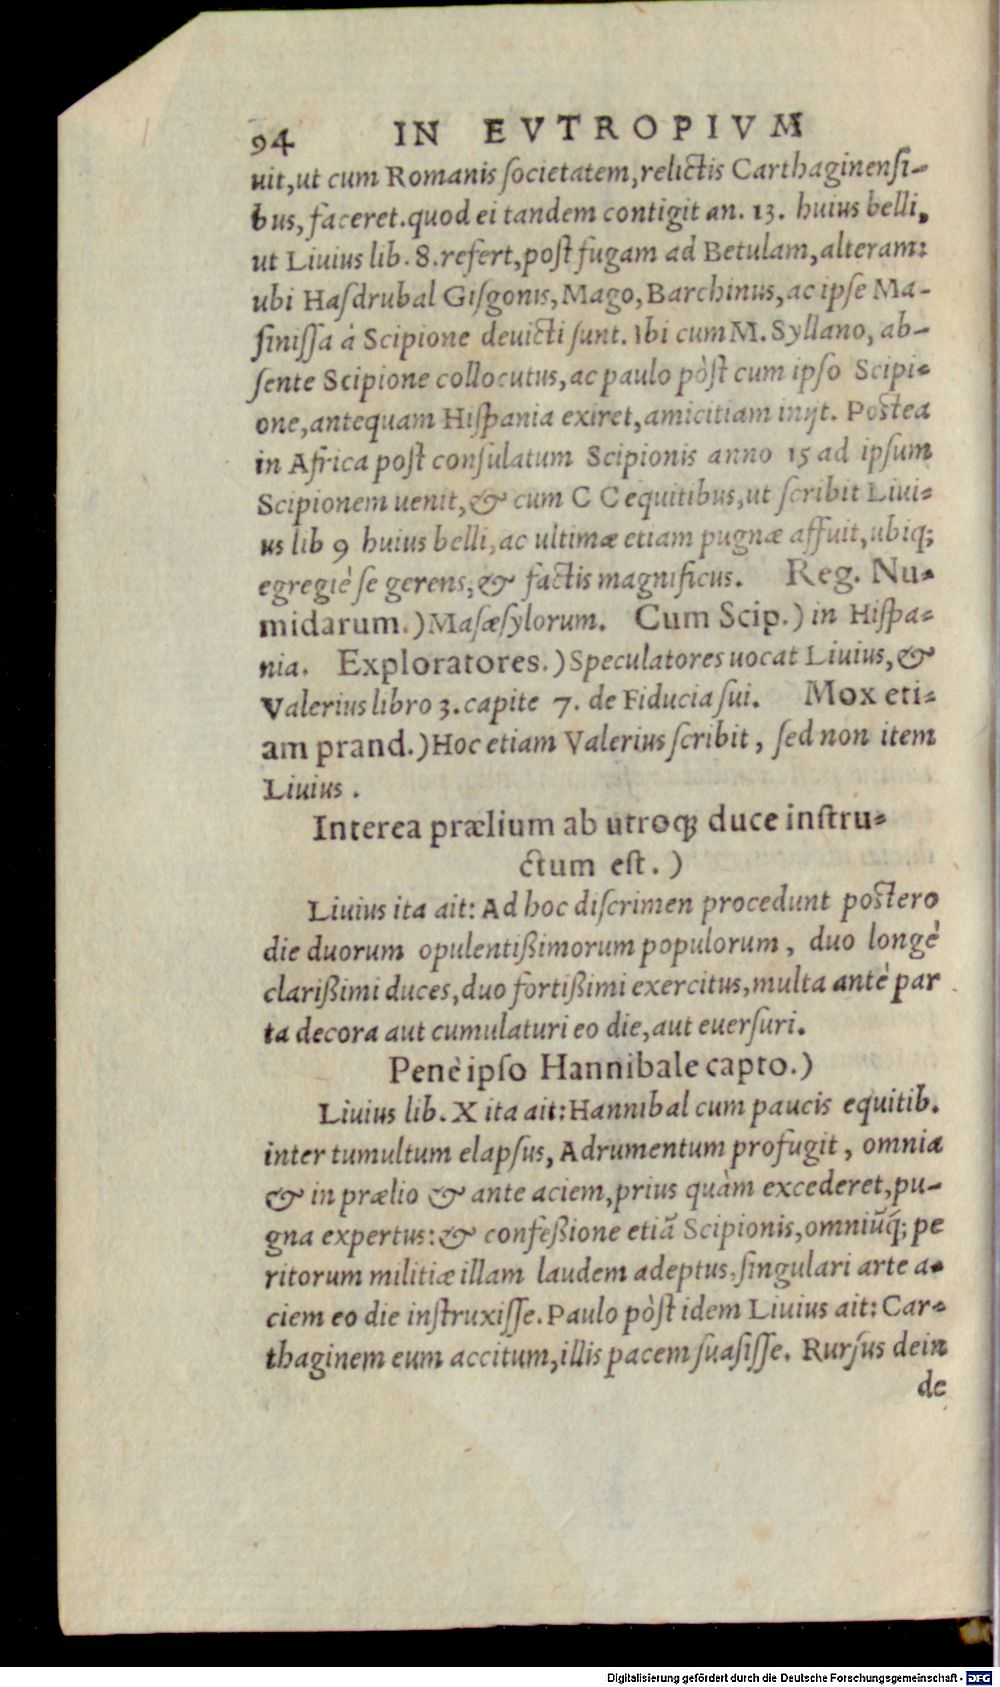 94 IN EVTROPIVM
uit,ut cum Romanis ſocietatem,relictis Carthaginenſi-
bus, faceret.quod ei tandem contigit an. 13. huius belli,
ut Liuius lib. 8.refert,poſt fugam ad Betulam,alteram:
ubi Haſdrubal Giſgonis,Mago,Barchinus,ac ipſe Ma-
ſiniſſa à Scipione deuicti ſunt. Ibi cum M. Syllano, ab-
ſente Scipione collocutus,ac paulo pòſt cum ipſo Scipi-
one,antequam Hiſpania exiret,amicitiam inijt. Postea
in Africa poſt conſulatum Scipionis anno 15 ad ipſum
Scipionem uenit,& cum C C equitibus,ut ſcribit Liui-
us lib 9 huius belli,ac ultimæ etiam pugnæ affuit,ubiq;
egregiè ſe gerens,& factis magnificus. Reg. Nu-
midarum.)Maſæſylorum. Cum Scip.) in Hiſpa-
nia. Exploratores.) Speculatores uocat Liuius,&
Valerius libro 3.capite 7. de Fiducia ſui. Mox eti-
am prand.)Hoc etiam Valerius ſcribit, ſed non item
Liuius.
Interea prælium ab utroq; duce inſtru-
ctum eſt.)
Liuius ita ait: Ad hoc diſcrimen procedunt postero
die duorum opulentißimorum populorum, duo longè
clarißimi duces,duo fortißimi exercitus,multa antè par
ta decora aut cumulaturi eo die,aut euerſuri.
Penè ipſo Hannibale capto.)
Liuius lib. X ita ait:Hannibal cum paucis equitib.
inter tumultum elapſus, Adrumentum profugit, omnia
& in prælio & ante aciem,prius quàm excederet,pu-
gna expertus:& confeßione etiã Scipionis,omniũq́; pe
ritorum militiæ illam laudem adeptus,ſingulari arte a-
ciem eo die inſtruxiſſe. Paulo pòſt idem Liuius ait: Car-
thaginem eum accitum,illis pacem ſuaſiſſe. Rurſus dein
de
Digitalisierung gefördert durch die Deutsche Forschungsgemeinschaft - DFG